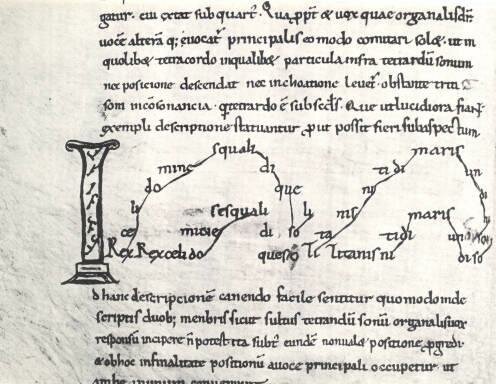 gatur. cui extat subquart. Quappt & uox quae organalis dicit
uoce altera q; uocat principalis eo modo comitari sole. ut in
quolibe tetracordo inqualibe particula infra tetrardu sonum
nec posicione descendat nec inchoatione leuet. obstante triti
soni inconsonancia. q tetrardo e subscds. Que ut lucidiora fiant
exempli descriptione statuantur put possit fieri subaspectum.
squali maris
mine di ti di un
do que ni di
li sesquali li nis maris so
ce mine di so ta tidi un
Rex. Rex celi do queso Ti titanis ni diso
d hanc descripcione canendo facile sentitur quomodo inde
scriptis duob; menbris sicut subtus tetrardu sonu organalis uox
responsu incipere n potest ita subt eunde non uale positione pgredi
& obhoc infinalitate positionu auoce principali occupetur ut
ambe inunum